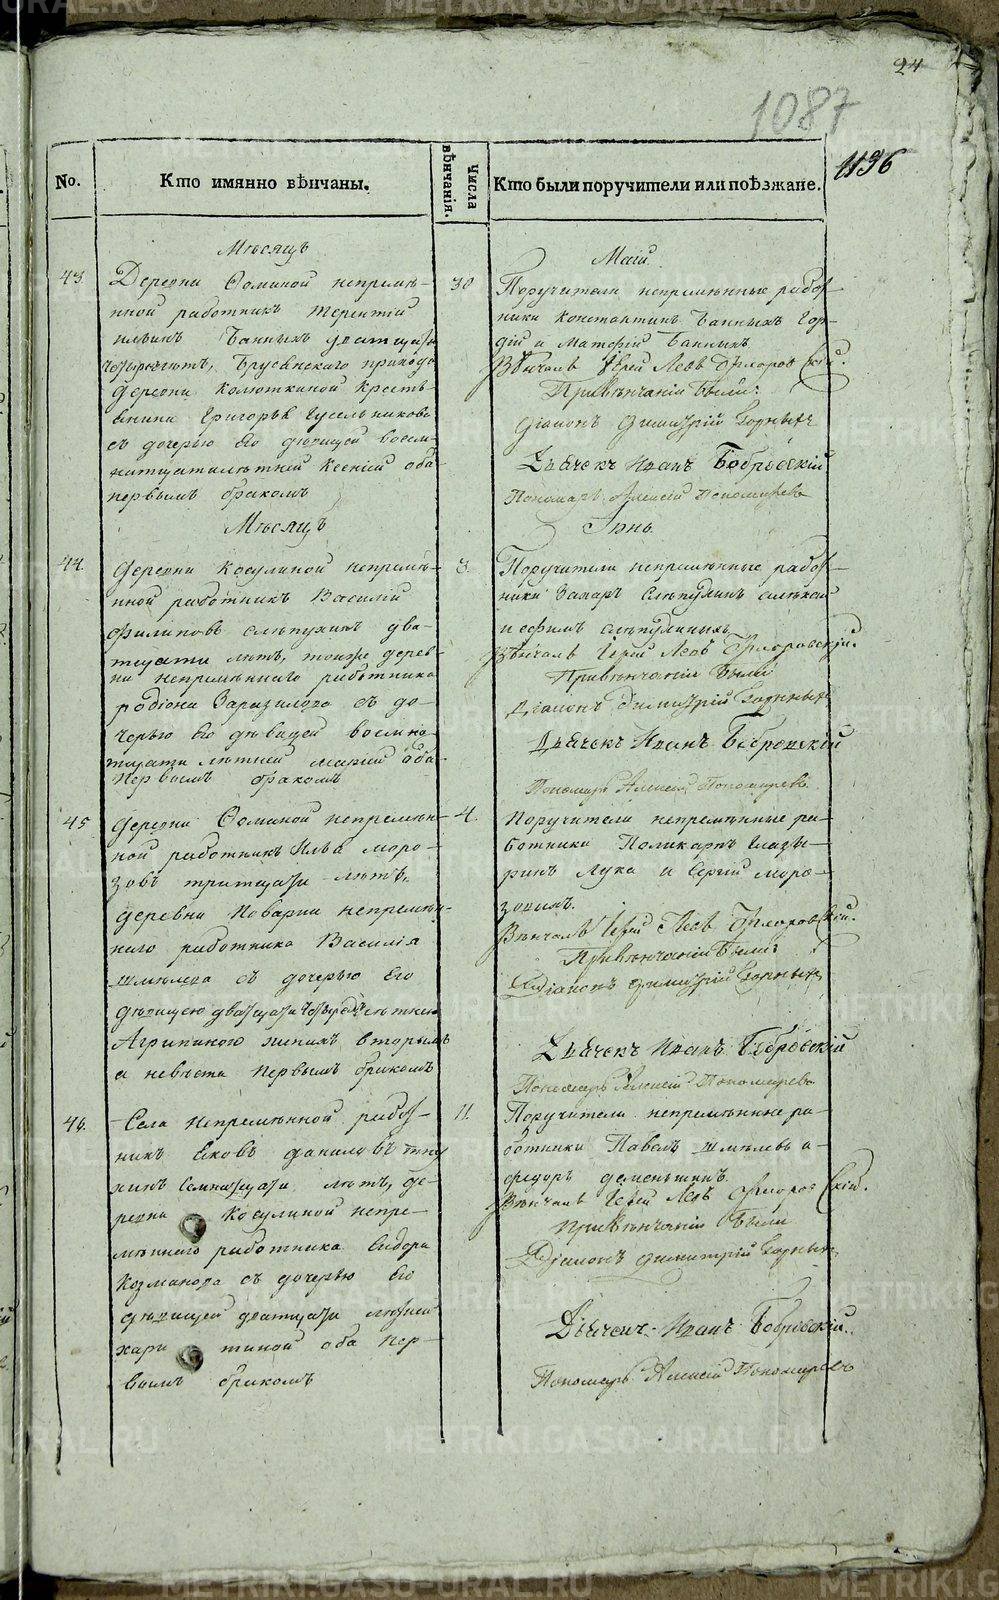 24
1087
1196
No.
Кто имянно вѣнчаны.
Числа вѣнчанія.
Кто были поручители или поѣзжане.
Мѣсяцъ
Маій
43.
Деревни Фоминой непремѣ-
нной работникъ Терентій
Банныхъ дватцати
лѣтъ, Брусянского прихода
деревни Колюткиной кресть-
янина Григорья Гусельникова
съ дочерью Его дѣвицей восем-
натцатилѣтней Ксеніей оба
первымъ бракомъ
30
Поручители непремѣнные работ-
ники Константинъ Банныхъ Гор-
дій и Матфій Банныхъ
Вѣнчалъ Іерей Левъ Флоровскій.
При вѣнчаніи были:
Діаконъ Димитрій Горныхъ
Дьячекъ Иванъ Бобровскій
Пономарь Алексій Пономаревъ
Мѣсяцъ
Іюнь.
44.
Деревни Косулиной непремѣ-
нной работникъ Василій
Филиповъ Слѣпухинъ два-
тцати лѣтъ, тоиже дерев-
ни непремѣннаго работника
Родіона съ до-
черью Его дѣвицей восемна-
тцати лѣтней Маріей оба
первымъ бракомъ
3.
Поручители непремѣнные работ-
ники Захаръ
и Ефимъ
Вѣнчалъ Іерей Левъ Флоровскій.
При вѣнчаніи были
Діаконъ Димитрій Горныхъ
Дьячекъ Иванъ Бобровскій
Пономарь Алексій Пономаревъ
45
Деревни Фоминой непремѣн-
ной работникъ Илья Моро-
зовъ тритцати лѣтъ,
деревни Поварни непремѣн-
наго работника Василія
Шмѣлева съ дочерью Его
дѣвицею дватцати четырехъ лѣтнею
Агрипиною женихъ вторымъ
а невѣста первымъ бракомъ
4.
Поручители непремѣнные ра-
ботники Поликарпъ Глазы-
ринъ Лука и Сергій Моро-
зовыхъ.
Вѣнчалъ Іерей Левъ Флоровскій.
При вѣнчаніи были:
Діаконъ Димитрій Горныхъ
Дьячекъ Иванъ Бобровскій
Пономарь Алексій Пономаревъ
46.
Села непремѣнной работ-
никъ Яковъ Даниловъ
лѣтъ, де-
ревни Косулиной непре-
мѣннаго работника Сидора
Казманова съ дочерью Его
дѣвицей дватцати лѣтней
Хари тиной оба пер-
вымъ бракомъ
11.
Поручители непремѣнные ра-
ботники Павелъ Шмѣлевъ а
Федоръ Деменьшинъ.
Вѣнчалъ Іерей Левъ Флоровскій.
При вѣнчаніи были
Діаконъ Димитрій Горныхъ
Дьячекъ Иванъ Бобровскій.
Пономарь Алексій Пономаревъ
METRIKI.GASO-URAL.RU